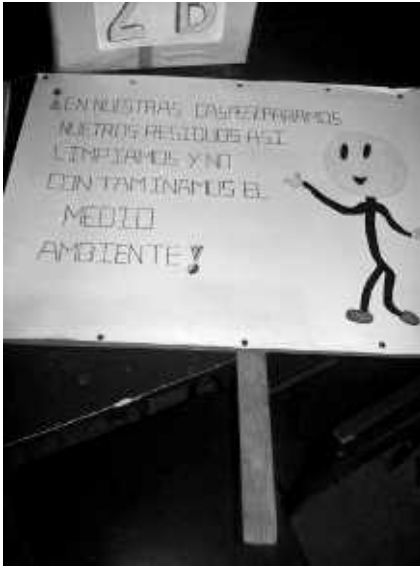 2 D
¡EN NUESTRAS CASASEPARAMOS
NUETROS RESIDUOS ASI
LIMPIAMOS Y NO
CON TAMINAMOS EL
MEDIO
AMBIENTE!